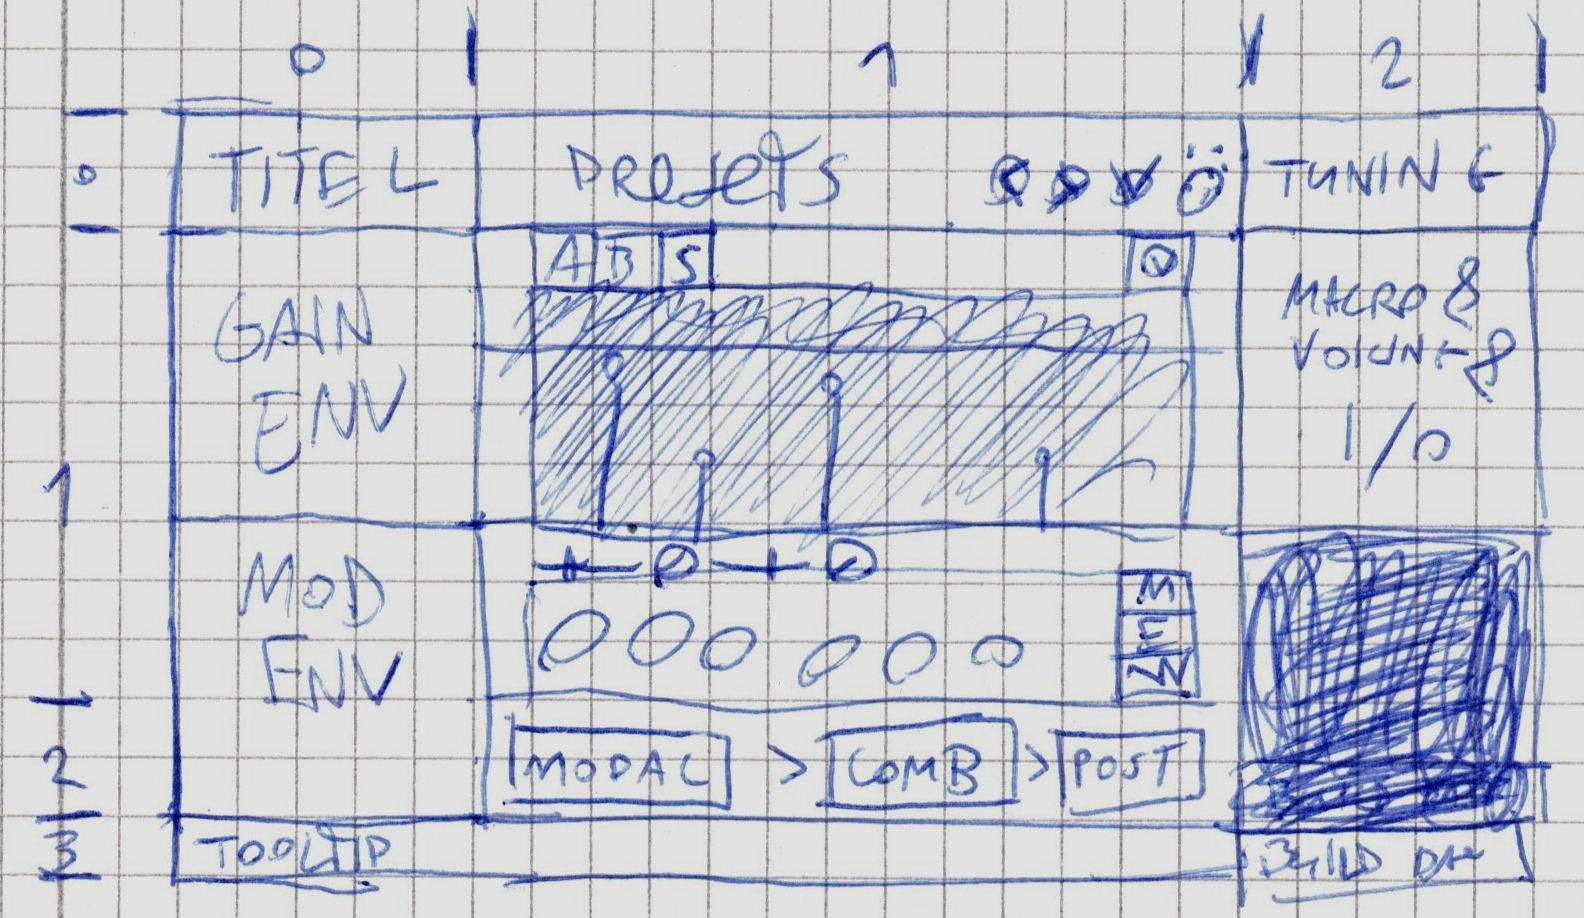 0 1 2
0 TITEL Presets TUNING
A B S
GAIN
ENV
MACRO 8
VOLUME 8
I/O
1
MOD
ENV
2 MODAL > COMB > POST
3 TOOLTIP BUILD